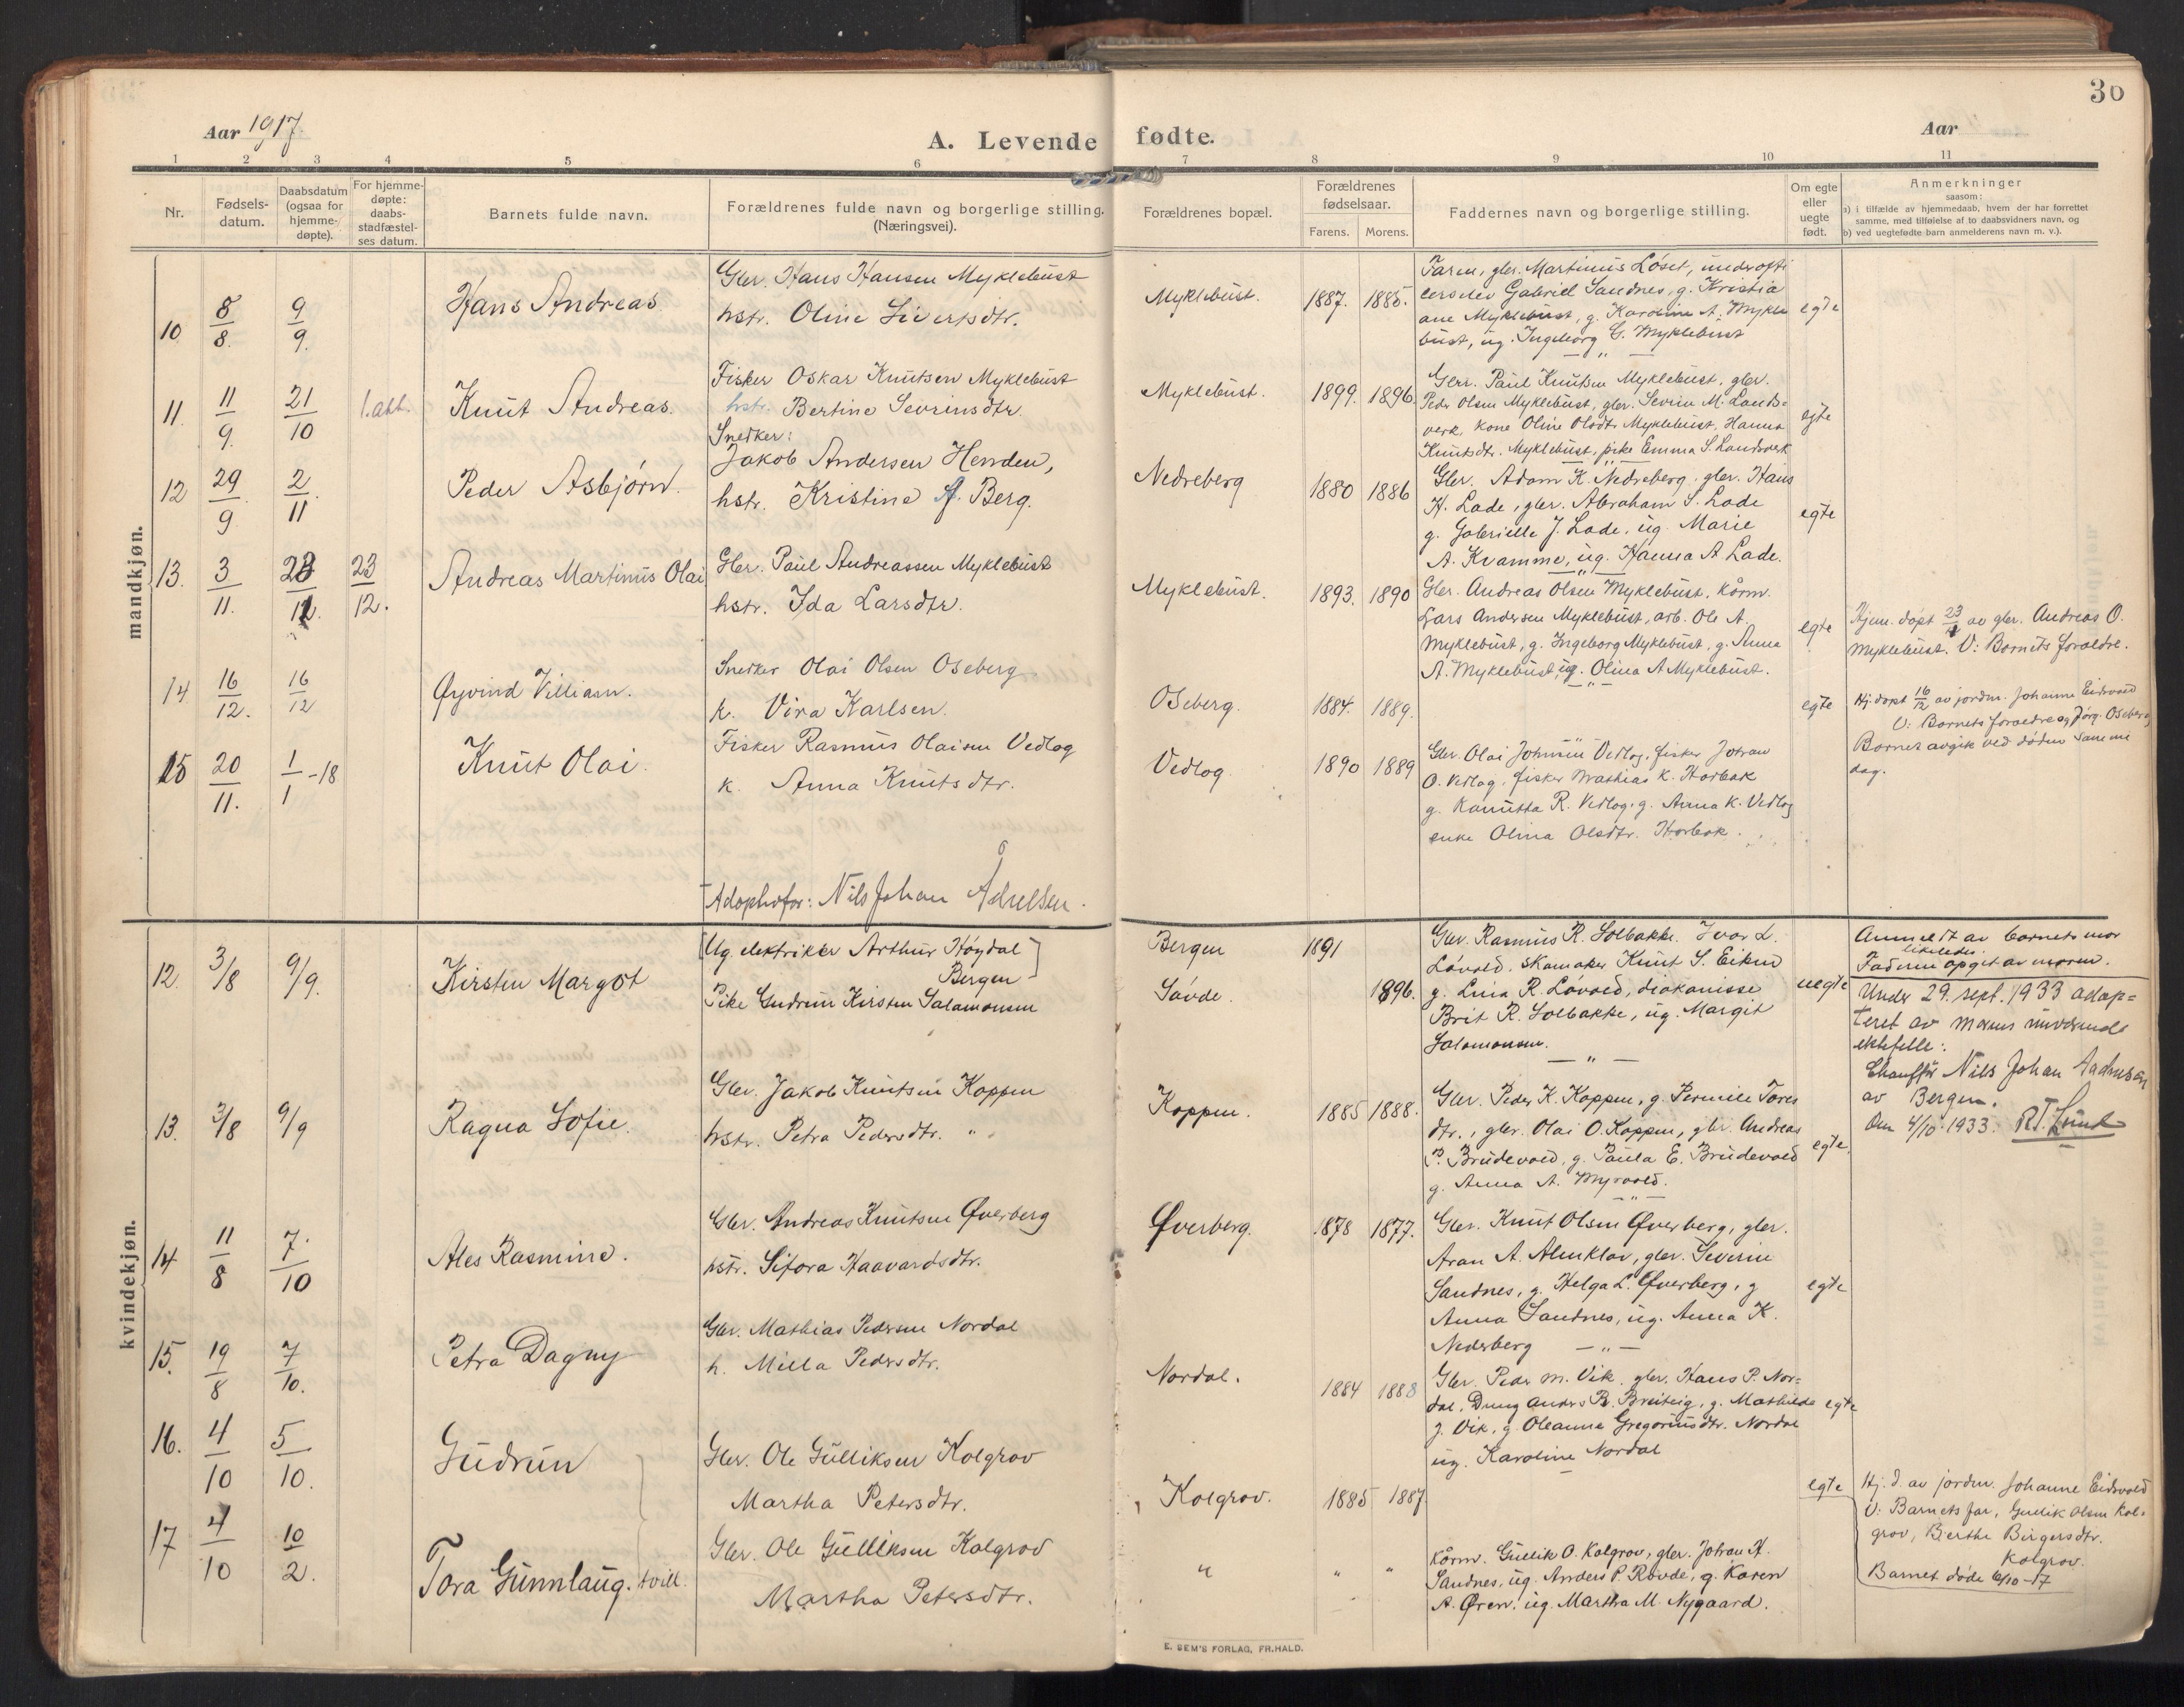 30
Aar 1917.
A. Levende fødte.
Aar
1 2 3 4 5 6 7 8 9 10 11
Nr.
Fødsels-
datum.
Daabsdatum
(ogsaa for
hjemme-
døpte).
For hjemme-
døpte:
daabs-
stadfæstel-
ses datum.
Barnets fulde navn.
Forældrenes fulde navn og borgerlige stilling.
(Næringsvei).
Forældrenes bopæl.
Forældrenes
fødselsaar.
Farens. Morens.
Faddernes navn og borgerlige stilling.
Om egte
eller
uegte
født.
Anmerkninger
saasom:
a) i tilfælde av hjemmedaab, hvem der har forrettet
samme, med tilføielse af to daabsvidners navn, og
b) ved uegtefødte barn anmelderens navn m. v.).
mandkjøn.
10. 8/8. 9/9. Hans Andreas
Gbr. Hans Hansen Myklebust
hstr. Oline Sivertsdtr.
Myklebust. 1887. 1885.
Faren, gbr. Martinus Løset, underoffi
cerselev Gabriel Sandnes, g. Kristia
ane Myklebust, g. Karoline A. Mykle
bust, ug. Ingeborg G. Myklebust
egte
11. 11/9. 21/10 1. att. Knut Andreas.
Fisker Oskar Knutsen Myklebust
hstr. Bertine Sevrinsdtr.
Myklebust. 1899. 1896.
Gbr. Paul Knutsen Myklebust, gbr.
Peder Olsen Myklebust, gbr. Sevrin M. Lands-
verk, kone Oline Olsdtr. Myklebust, Hanna
Knutsdtr. Myklebust, pike Emma S. Landsverk
egte
12 29/9 2/11. Peder Asbjørn.
Snedker:
Jakob Andersen Henden,
hstr. Kristine A. Berg.
Nedreberg 1880 1886
Gbr. Adam K. Nedreberg, gbr. Hans
H. Lade, gbr. Abraham S. Lade
g. Gabrielle J. Lade, ug. Marie
A. Kvamme, ug. Hanna A. Lade.
egte
13. 3/11. 23/12. 23/12. Andreas Martinus Olai
Gbr. Paul Andreassen Myklebust
hstr. Ida Larsdtr.
Myklebust. 1893. 1890
Gbr. Andreas Olsen Myklebust, kårm.
Lars Andersen Myklebust, arb. Ole A.
Myklebust, g. Ingeborg Myklebust, g. Anna
A. Myklebust, ug. Olina A Myklebust.
egte
Hjem. døpt 23/ av gbr. Andreas O.
Myklebust. V: Barnets foraldre.
14. 16/12. 16/12 Øyvind Villiam.
Snedker Olai Olsen Oseberg
k. Vira Karlsen.
Oseberg. 1884. 1889.
egte
Hj. døpt 16/12 av jordm. Johanne Eidsvold
V: Barnets foraldre og Jørg. Oseberg
Barnet avgik ved døden samme
dag.
15 20/11. 1/1-18 Knut Olai.
Fisker Rasmus Olaisen Vedlog
k. Anna Knutsdtr.
Vedlog. 1890 1889
Gbr. Olai Johnsen Vedlog, fisker Johan
O. Vedlog, fisker Mathias K. Horbak
g. Kanutta R. Vedlog, g. Anna K. Vedlog
enke Olina Olsdtr. Horbak.
Adoptivfar: Nils Johan Ådnelsen.
kvindekjøn.
12. 3/8 9/9. Kirsten Margot
[Ug. elektriker Arthur Høydal
Bergen]
Pike Gudrun Kirsten Salamonsen
Bergen 1891
Søvde. 1896.
Gbr. Rasmus R. Solbakke. Ivar L.
Løvold, skomaker Knut S. Eikrem
g. Lina R. Løvold, diakonisse
Brit R. Solbakke, ug. Margit
Salomonsen.
uegte
Anmeldt av barnets mor
likeledes
Faderen opgit av moren.
Under 29. sept. 1933 adop-
teret av morens nuværende
ektefelle:
Chauffør Nils Johan Aadnesen
av Bergen.
Den 4/10 1933. R. T. Lund
13. 3/8 9/9 Ragna Sofie.
Gbr. Jakob Knutsen Koppen
hstr. Petra Pedersdtr. "
Koppen. 1885 1888.
Gbr. Peder K. Koppen, g. Pernille Tores
dtr., gbr. Olai O. Koppen, gbr. Andreas
P. Brudevold, g. Paula E. Brudevold
g. Anna A. Myrvold.
egte
14 11/8 7/10 Ales Rasmine.
Gbr. Andreas Knutsen Øverberg
hstr. Sifora Haavardsdtr.
Øverberg. 1878 1877.
Gbr. Knut Olsen Øverberg, gbr.
Aran A. Almklov, gbr. Severin
Sandnes, g. Helga L. Øverberg, g
Anna Sandnes, ug. Anna K.
Nederberg
egte
15. 19/8 7/10. Petra Dagny
Gbr. Mathias Pedersen Nordal
h. Milla Pedersdtr.
Nordal. 1884 1888
Gbr. Peder M. Vik, gbr. Hans P. Nor-
dal, Dreng Anders B. Breiteig, g. Mathilde
J. Vik, g. Oleanna Gregoriusdtr. Nordal
ug. Karoline Nordal
egte
16. 4/10 5/10. Gudrun
Gbr. Ole Gulliksen Kolgrov
Martha Petersdtr.
Kolgrov. 1885 1887.
egte
Hj. d. av jordm. Johanne Eidsvold
V: Barnets far, Gullik Olsen Kol-
grov, Berthe Birgersdtr.
Kolgrov.
Barnet døde 6/10-17
17 4/10 10/2. Tora Gunnlaug. tvill.
Gbr. Ole Gulliksen Kolgrov
Martha Petersdtr.
" " "
Kårm. Gullik O. Kolgrov, gbr. Johan H.
Sandnes, ug. Anders P. Rovde, g. Karen
A. Øren, ug. Martha M. Nygaard.
E. SEM'S FORLAG, FR.HALD.